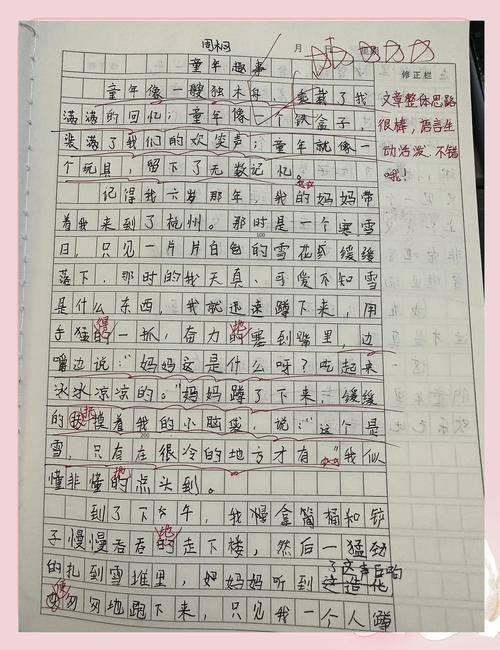 周桐
月 日 星期
童年趣事
修正栏
童年像一艘独木舟，载了我
满满的回忆；童年像一个铁盒子，
装满了我们的欢笑声；童年就像一
个玩具，留下了无数记忆。
文章整体思路
很棒，语言生
动活泼，不错
哦！
记得我六岁那年，我的妈妈带
着我来到了杭州。那时是一个寒雪
100
日，只见一片片白色的雪花缓缓
落下，那时的我天真、可爱不知雪
是什么东西，我就迅速蹲下来，用
手猛的一抓，奋力的塞到嘴里，边
得 地
嚼边说：“妈妈这是什么呀？吃起来
冰冰凉凉的。”妈妈蹲了下来一缓缓
的摸着我的小脑袋，说：“这个是
200
雪，只存在很冷的地方才有。”我似
懂非懂的点头到。
地
到了下午，我慢拿简桶和铲
子慢慢吞吞的走下楼，然后一猛劲
地
的扎到雪堆里，妈妈听到
了这声巨响
匆匆地跑下来，只见我一个人蹲